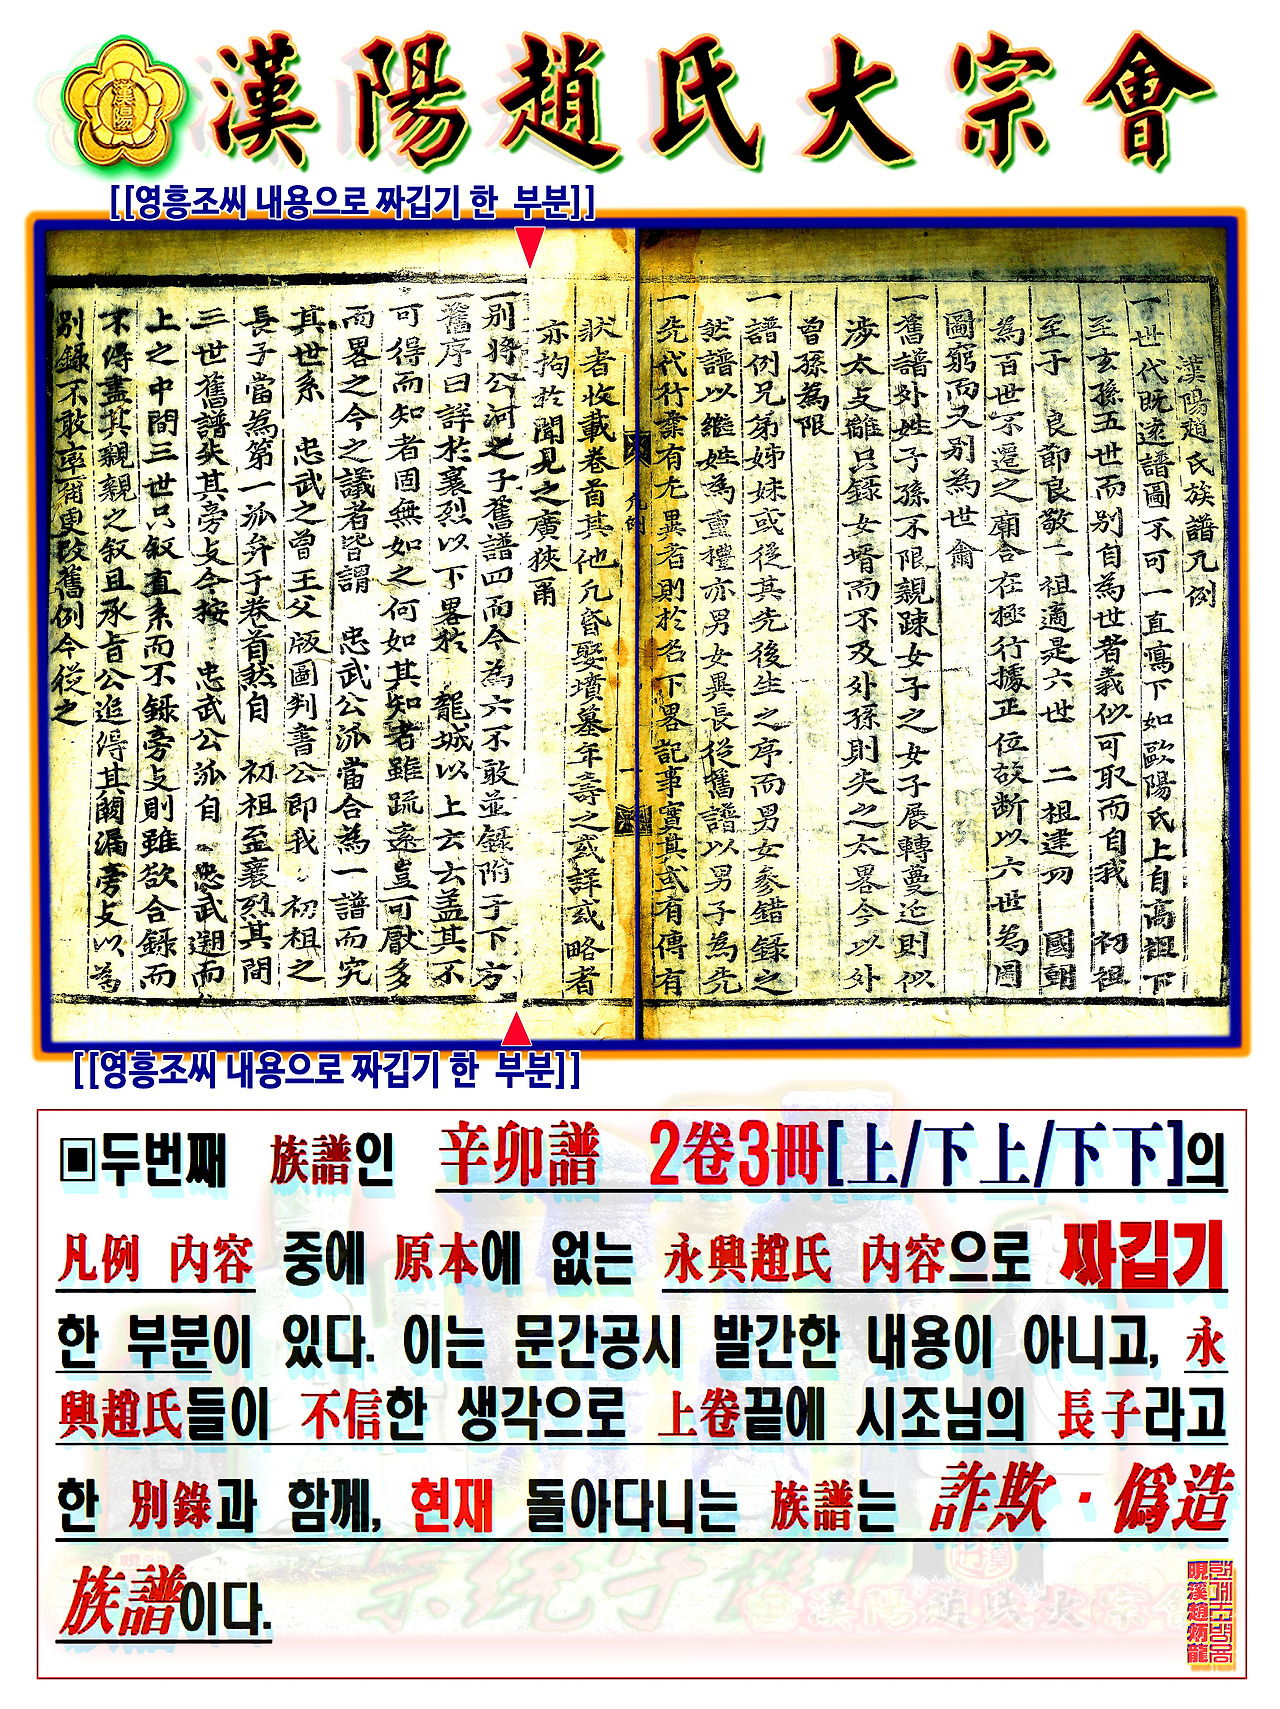 漢陽趙氏大宗會
漢陽
[[영흥조씨 내용으로 짜깁기 한 부분]]
漢陽趙氏族譜凡例
一世代旣遠譜圖不可一直寫下如歐陽氏上自高祖下
至玄孫五世而別自為世者義似可取而自我 初祖
至于 良節良敬二祖適是六世 二祖建功 國朝
為百世不遷之廟合在極行據正位故斷以六世為圖
圖窮而又別為世
一舊譜外姓子孫不限親踈女子之女子展轉蔓延則似
涉太支離只錄女壻而不及外孫則失之太畧今以外
曾孫為限
一譜例兄弟姊妹或從其先後生之序而男女參錯錄之
然譜以繼姓為重禮亦男女異長從舊譜以男子為先
一先代行業有尤異者則於名下畧記事實其或有傳有
狀者收載卷首其他凡昏娶墳墓年壽之或詳或略者
亦拘於聞見之廣狹甭
凡例
一
一別將公河之子舊譜四而今為六不敢並錄附于下方
一舊序曰詳於襄烈以下畧於 龍城以上云云盖其不
可得而知者固無如之何如其知者雖䟽遠豈可厭多
而畧之今之議者皆謂 忠武公派當合為一譜而究
其世系 忠武之曾王父版圖判書公即我 初祖之
長子當為第一派弁于卷首然自 初祖至襄烈其間
三世舊譜失其旁支今按 忠武公派自 忠武遡而
上之中間三世只叙直系而不錄旁支則雖欲合錄而
不得盡其親親之叙且承旨公追得其闕漏旁支以為
別錄不敢率爾更改舊例今從之
[[영흥조씨 내용으로 짜깁기 한 부분]]
▣두번째 族譜인 辛卯譜 2卷3冊[上/下上/下下]의
凡例 內容 중에 原本에 없는 永興趙氏 內容으로 짜깁기
한 부분이 있다. 이는 문간공시 발간한 내용이 아니고, 永
興趙氏들이 不信한 생각으로 上卷끝에 시조님의 長子라고
한 別錄과 함께, 현재 돌아다니는 族譜는 詐欺·僞造
族譜이다.
晛溪趙炳龍
현계조병용